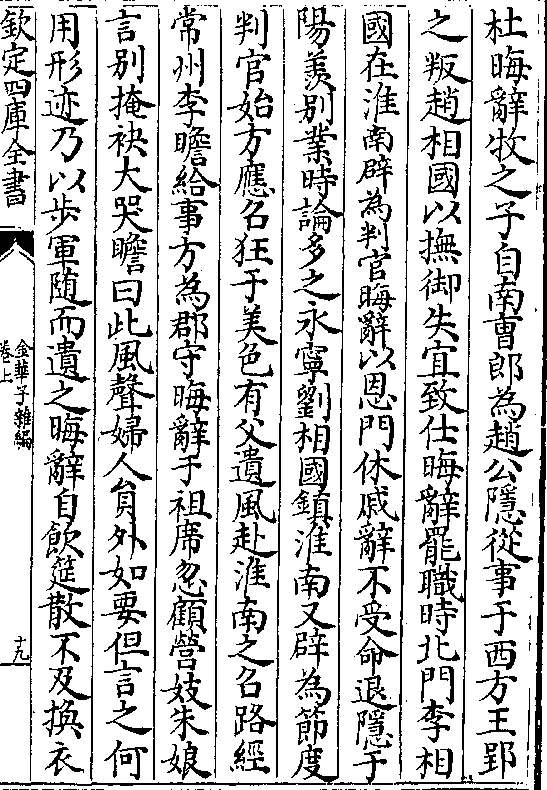 杜晦辭牧之子自南曹郎為趙公隱從事于西方王郢
之叛趙相國以撫御失宜致仕晦辭罷職時北門李相
國在淮南辟為判官晦辭以恩門休戚辭不受命退隱于
陽羡别業時論多之永寧劉相國鎮淮南又辟為節度
判官始方應名狂于美色有父遺風赴淮南之名路經
常州李瞻給事方為郡守晦辭于祖席忽顧營妓朱娘
言别掩袂大哭瞻曰此風聲婦人貟外如要但言之何
用形迹乃以步軍随而遺之晦辭自飲筵散不及換衣
欽定四庫全書
金華子雜編
卷上
十九